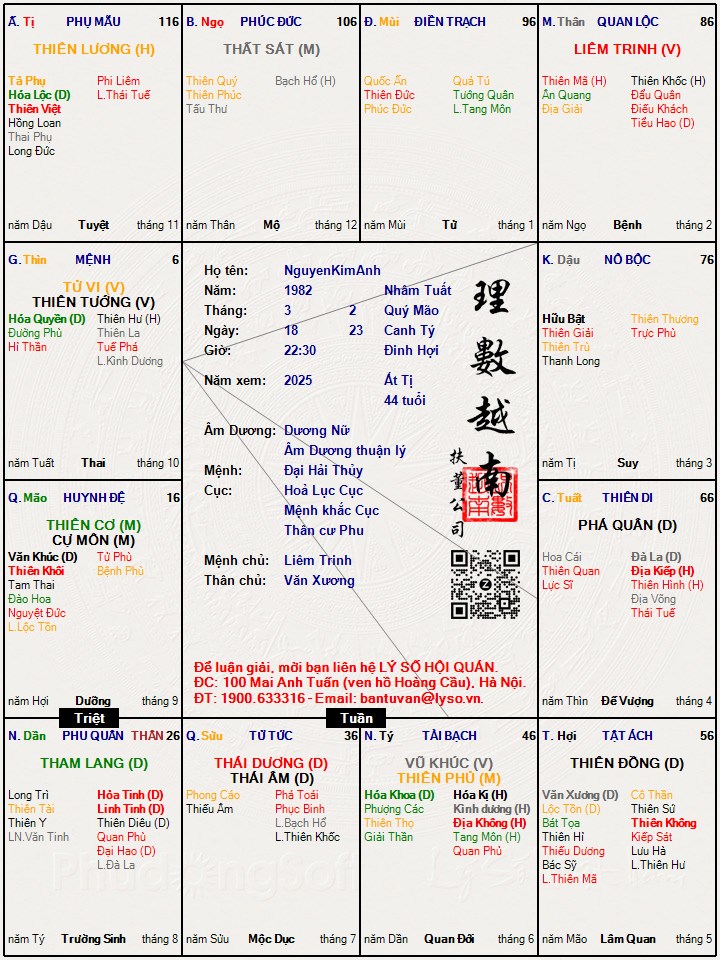 Ấ. Tị PHỤ MẪU 116
THIÊN LƯƠNG (H)
Tả Phụ Phi Liêm
Hóa Lộc (D) L.Thái Tuế
Thiên Việt
Hồng Loan
Thai Phụ
Long Đức
năm Dậu Tuyệt tháng 11
B. Ngọ PHÚC ĐỨC 106
THẤT SÁT (M)
Thiên Quý Bạch Hổ (H)
Thiên Phúc
Tấu Thư
năm Thân Mộ tháng 12
Đ. Mùi ĐIỀN TRẠCH 96
Quốc Ấn Quả Tú
Thiên Đức Tướng Quân
Phúc Đức L.Tang Môn
năm Mùi Tử tháng 1
M. Thân QUAN LỘC 86
LIÊM TRINH (V)
Thiên Mã (H) Thiên Khốc (H)
Ân Quang Đẩu Quân
Địa Giải Điếu Khách
Tiểu Hao (D)
năm Ngọ Bệnh tháng 2
G. Thìn MỆNH 6
TỬ VI (V)
THIÊN TƯỚNG (V)
Hóa Quyền (D) Thiên Hư (H)
Đường Phù Thiên La
Hỉ Thần Tuế Phá
L.Kình Dương
năm Tuất Thai tháng 10
Họ tên: NguyenKimAnh
Năm: 1982 Nhâm Tuất
Tháng: 3 2 Quý Mão
Ngày: 18 23 Canh Tý
Giờ: 22:30 Đinh Hợi
Năm xem: 2025 Ất Tị
44 tuổi
Âm Dương: Dương Nữ
Âm Dương thuận lý
Mệnh: Đại Hải Thủy
Cục: Hoả Lục Cục
Mệnh khắc Cục
Thân cư Phu
Mệnh chủ: Liêm Trinh
Thân chủ: Văn Xương
理數越南
扶董公司
Để luận giải, mời bạn liên hệ LÝ SỐ HỘI QUÁN.
ĐC: 100 Mai Anh Tuấn (ven hồ Hoàng Cầu), Hà Nội.
ĐT: 1900.633316 - Email: bantuvan@lyso.vn.
K. Dậu NÔ BỘC 76
Hữu Bật Thiên Thương
Thiên Giải Trực Phù
Thiên Trù
Thanh Long
năm Tị Suy tháng 3
Q. Mão HUYNH ĐỆ 16
THIÊN CƠ (M)
CỰ MÔN (M)
Văn Khúc (D) Tử Phù
Thiên Khôi Bệnh Phù
Tam Thai
Đào Hoa
Nguyệt Đức
L.Lộc Tồn
năm Hợi Dưỡng tháng 9
C. Tuất THIÊN DI 66
PHÁ QUÂN (D)
Hoa Cái Đà La (D)
Thiên Quan Địa Kiếp (H)
Lực Sĩ Thiên Hình (H)
Địa Võng
Thái Tuế
năm Thìn Đế Vượng tháng 4
Triệt
Tuần
N. Dần PHU QUÂN THÂN 26
THAM LANG (D)
Long Trì Hỏa Tinh (D)
Thiên Tài Linh Tinh (D)
Thiên Y Thiên Diêu (D)
LN.Văn Tinh Quan Phù
Đại Hao (D)
L.Đà La
năm Tý Trường Sinh tháng 8
Q. Sửu TỬ TỨC 36
THÁI DƯƠNG (D)
THÁI ÂM (D)
Phong Cáo Phá Toái
Thiếu Âm Phục Binh
L.Bạch Hổ
L.Thiên Khốc
năm Sửu Mộc Dục tháng 7
N. Tý TÀI BẠCH 46
VŨ KHÚC (V)
THIÊN PHỦ (M)
Hóa Khoa (D) Hóa Kị (H)
Phượng Các Kình dương (H)
Thiên Thọ Địa Không (H)
Giải Thần Tang Môn (H)
Quan Phủ
năm Dần Quan Đới tháng 6
T. Hợi TẬT ÁCH 56
THIÊN ĐỒNG (D)
Văn Xương (D) Cô Thần
Lộc Tồn (D) Thiên Sứ
Bát Tọa Thiên Không
Thiên Hỉ Kiếp Sát
Thiếu Dương Lưu Hà
Bác Sỹ L.Thiên Hư
L.Thiên Mã
năm Mão Lâm Quan tháng 5